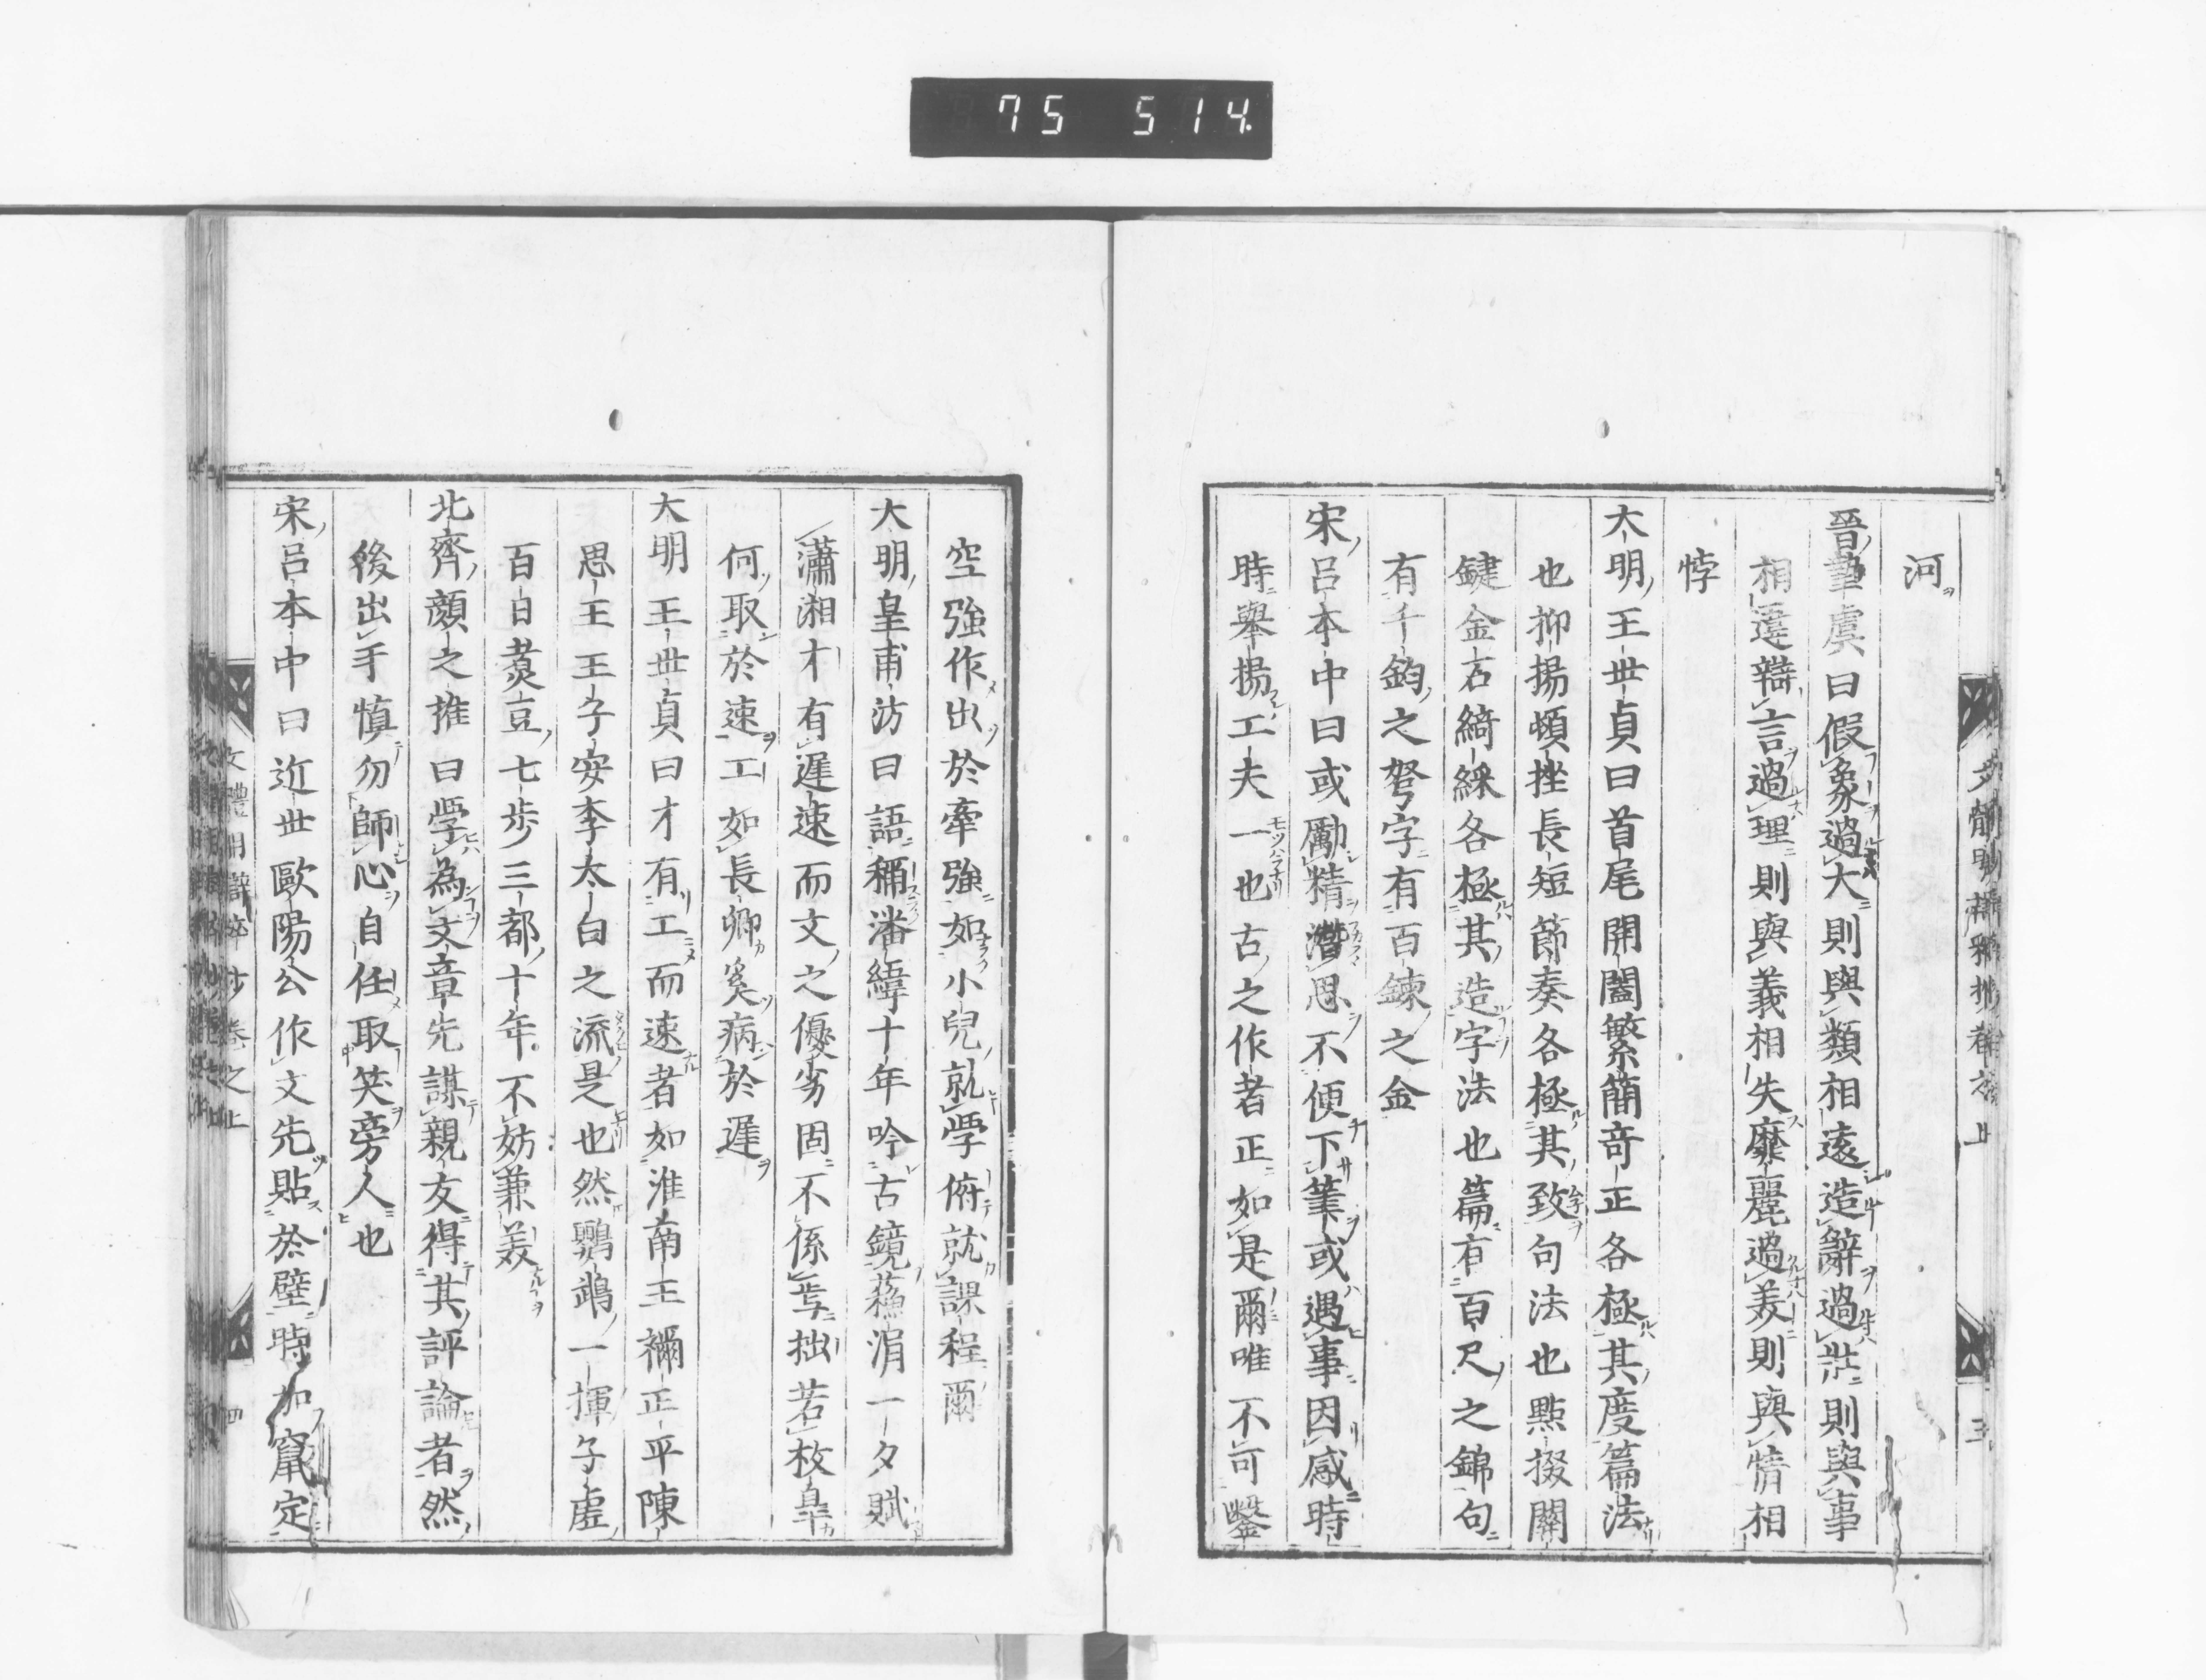 75 514
河
晉摯虞曰假象過大則與類相遠造辭過壯則與事
相違辯言過理則與義相失靡麗過美則與情相
悖
大明王世貞曰首尾開闔繁簡奇正各極其度篇法
也抑揚頓挫長短節奏各極其致句法也點掇關
鍵金石綺綵各極其造字法也篇有百尺之錦句
有千鈞之弩字有百鍊之金
宋呂本中曰或勵精潛思不便下筆或遇事因感時
時舉揚工夫一也古之作者正如是爾唯不可鑿
空強作出於牽強如小兒就學俯就課程爾
大明皇甫汸曰語稱潘緯十年吟古鏡蘓涓一夕賦
瀟湘才有遲速而文之優劣固不係焉拙若枚皐
何取於速工如長卿奚病於遲
大明王世貞曰才有工而速者如淮南王禰正平陳
思王王子安李太白之流是也然鸚鵡一揮子虛
百日煮豆七步三都十年不妨兼美
北齊顔之推曰學為文章先謀親友得其評論者然
後出手慎勿師心自任取笑旁人也
宋呂本中曰近世歐陽公作文先貼於壁時加竄定
文體明辯粹抄卷之上
四